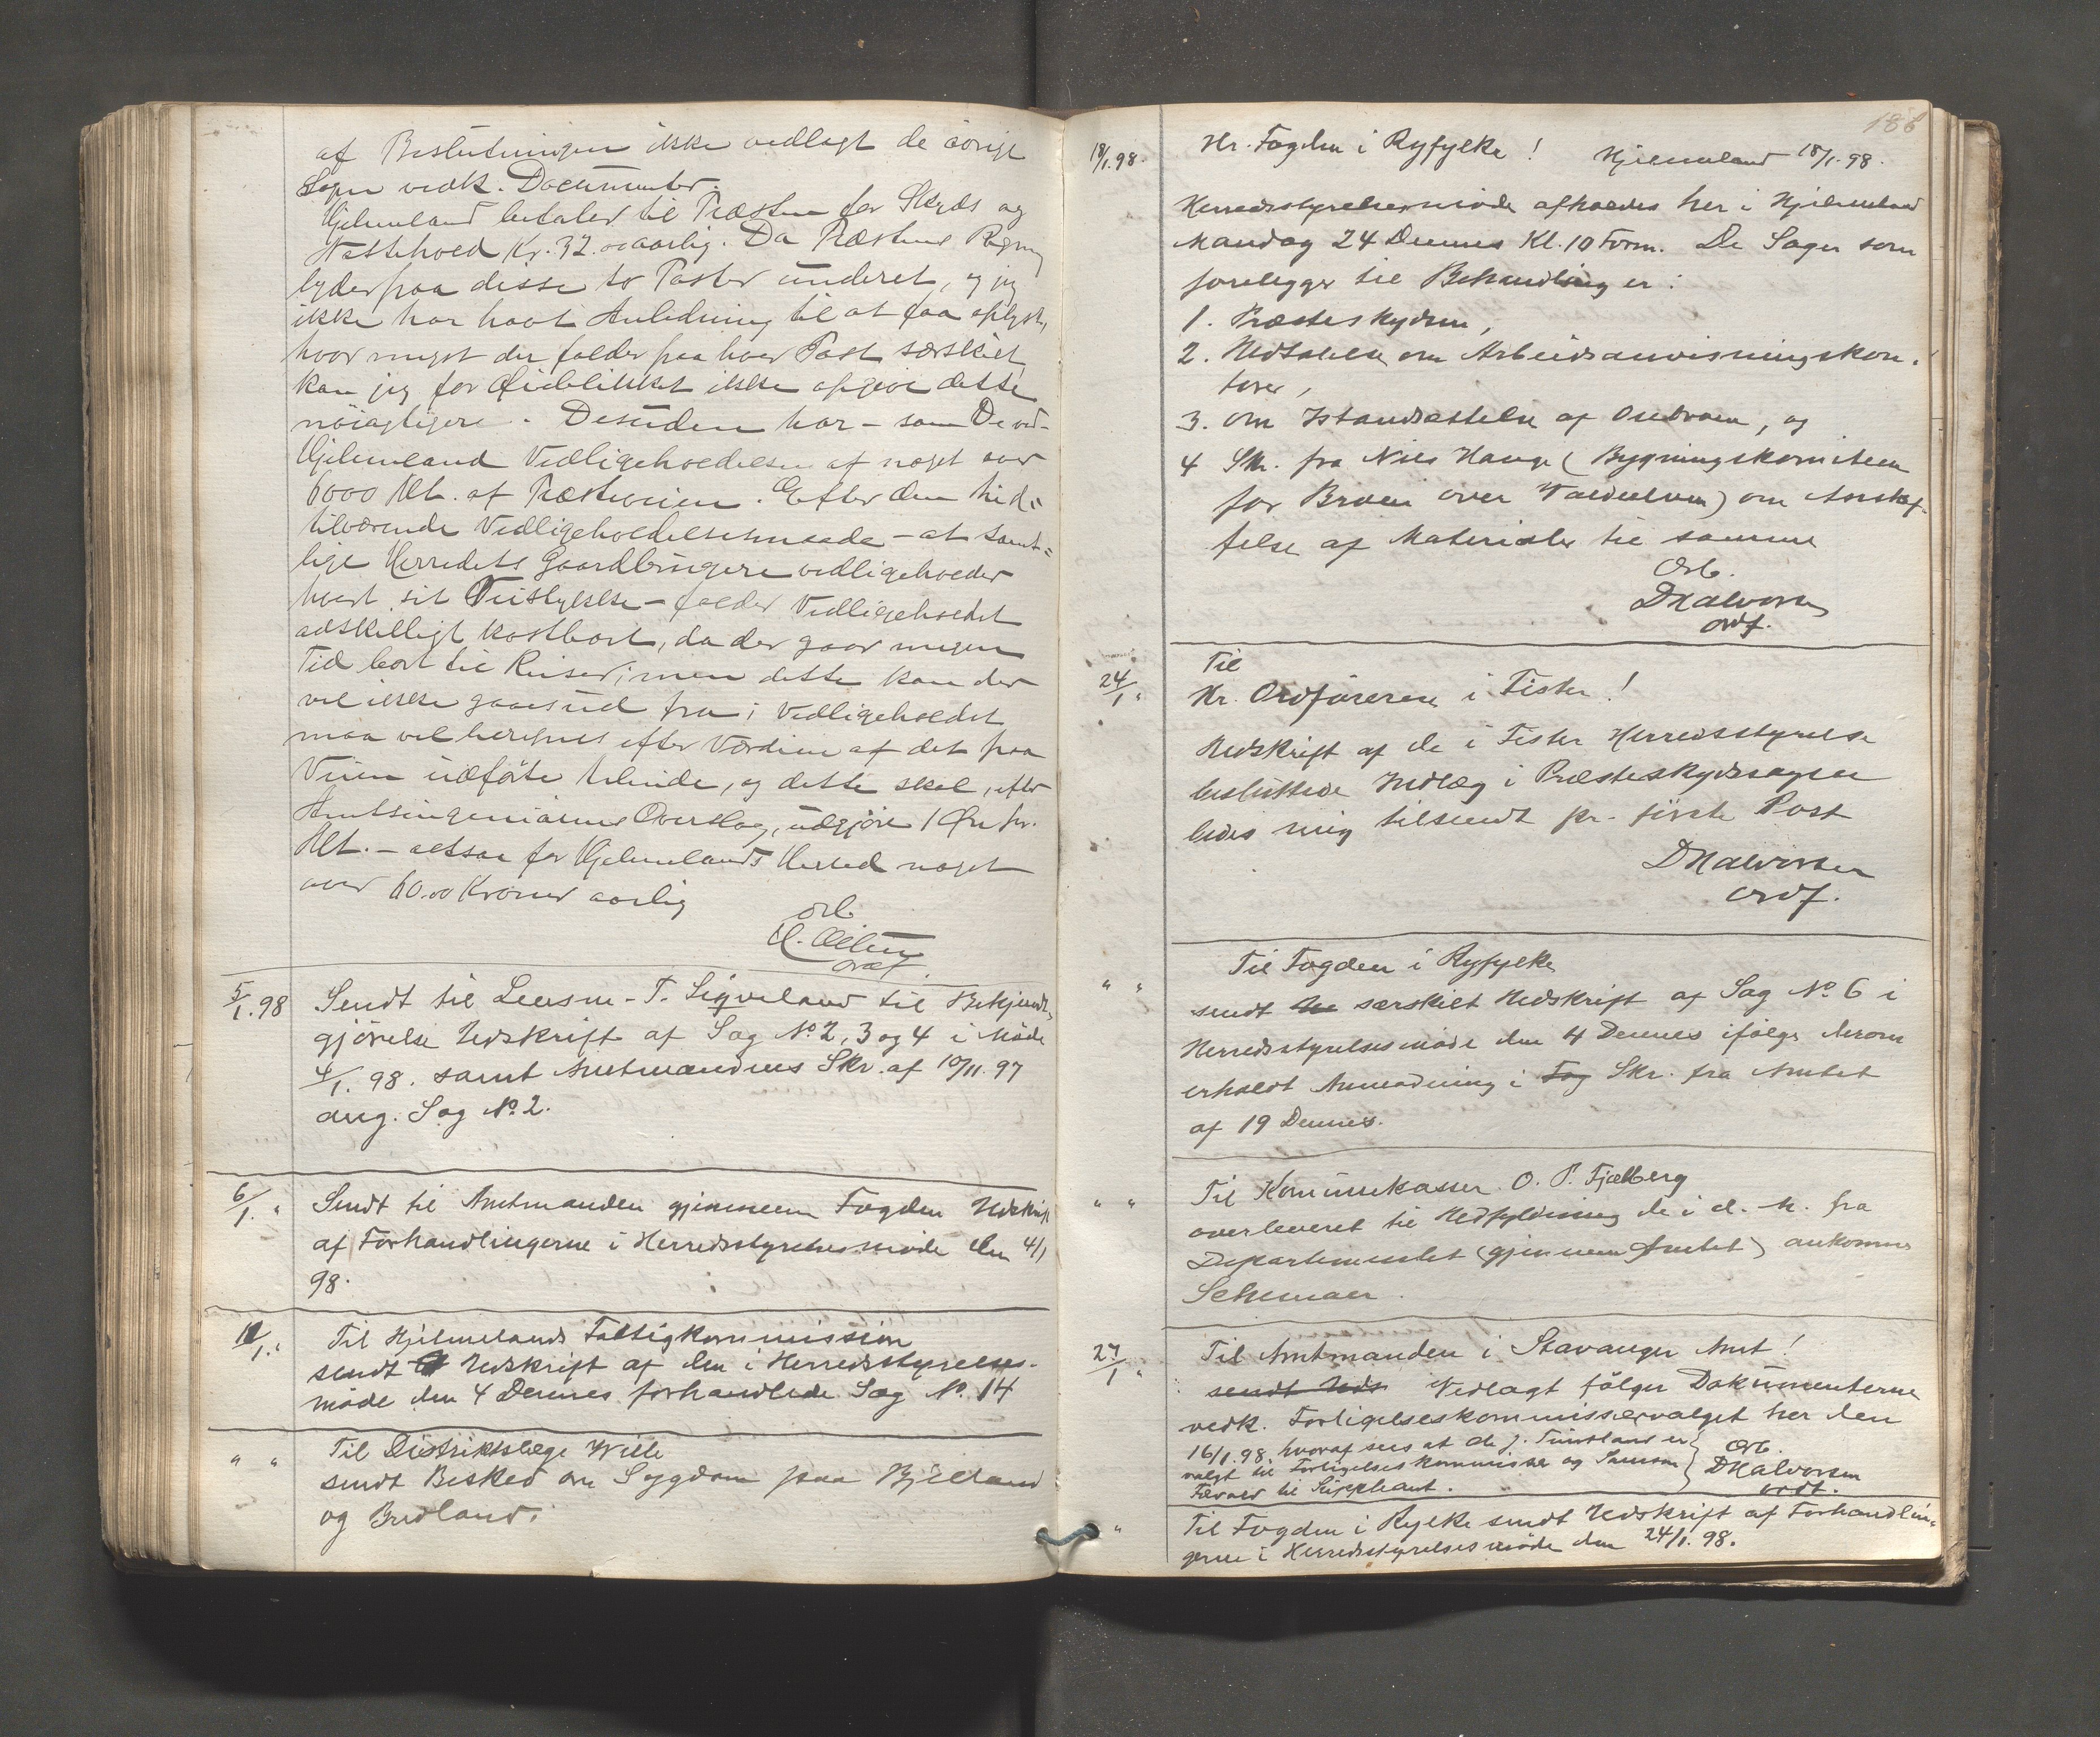 af Beslutningen ikke vedlagt de övrige
Sagen vedk. Documenter.
Hjelmeland betaler til Præsten for Skyds og
Nattehold Kr. 32.00 aarlig. Da Præstens Regning
lyder paa disse to Poster underet, og jeg
ikke har havt Anledning til at faa oplyst,
hvor meget der falder paa hver Post særskilt
kan jeg for Øieblikket ikke opgive dette
nöiagtigere. Desuden har – som De ved –
Hjelmeland Vedligeholdelsen af noget over
6000 Mt. af Præsteveien. Efter den hid-
tilværende Vedligeholdelsesmaade – at samt-
lige Herredets Gaardbrugere vedligeholder
hvert sit Veistykke – falder Vedligeholdet
adskilligt kostbart, da der gaar megen
Tid bort til Reiser; men dette kan der
vel ikke gaaes ud fra; Vedligeholdet
maa vel beregnes efter Værdien af det paa
Veien udförte Arbeide, og dette skal, efter
Amtsingeniörens Overslag, udgjöre 1 Øre pr.
Mt. – altsaa for Hjelmelands Herred noget
over 60.00 Kroner aarlig
Erb.
ordf.
5/1. 98 Sendt til Lensm. T. Sigveland til Bekjendt-
gjörelse Udskrift af Sag No. 2, 3 og 4 i Möde
4/1. 98. samt Amtmandens Skr. af 10/11. 97
ang. Sag No. 2.
6/1. " Sendt til Amtmanden gjennem Fogden Udskrift
af Forhandlingerne i Herredsstyrelsesmöde den 4/1
98.
11/1. " Til Hjelmelands Fattigkommission
sendt Udskrift af den i Herredsstyrelses-
möde den 4 Dennes forhandlede Sag No. 14
" " Til Distriktslæge Wille
sendt Besked om Sygdom paa Bjelland
og Bredland.
188
18/1. 98. Hr. Fogden i Ryfylke! Hjelmeland 18/1. 98.
Herredsstyrelsesmöde afholdes her i Hjelmeland
Mandag 24 Dennes Kl. 10 Form. De Sager som
forelegges til Behandling er:
1. Præsteskydsen,
2. Udtalelse om Arbeidsanvisningskon-
torer,
3. Om Istandsættelse af, og
4 Skr. fra Nils Hauge (Bygningskomiteen
for Broen over) om Anskaf-
felse af Materialer til samme
Erb.
D Halvorsen
ordf.
24/1 " Til
Hr. Ordföreren i Fister!
Udskrift af de i Fister Herredsstyrelse
besluttede Indlæg i Præsteskydssagen
bedes mig tilsendt pr. förste Post
D Halvorsen
ordf.
" " Til Fogden i Ryfylke
sendt særskilt Udskrift af Sag No. 6 i
Herredsstyrelsesmöde den 4 Dennes ifölge derom
erholdt Anmodning i Skr. fra Amtet
af 19 Dennes.
" " Til Kommunekasser O. P. Fjelberg
overleveret til Udfyldning de i d. M. fra
Departementet (gjennem Amtet) ankomne
Schemaer.
27/1 " Til Amtmanden i Stavanger Amt!
sendt Uds. Vedlagt fölger Dokumenterne
vedk. Forligelseskommissærvalget her den
16/1. 98. hvoraf sees at de J. er
valgt til Forligelseskommissær og Samson
til Suppleant.
Erb.
D Halvorsen
ordf.
" Til Fogden i Ryfylke sendt Udskrift af Forhandlin-
gerne i Herredsstyrelsesmöde den 24/1. 98.